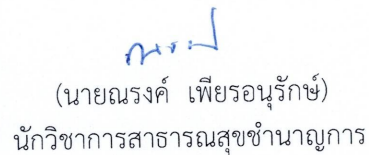 (นายณรงค์ เพียรอนุรักษ์)
นักวิชาการสาธารณสุขชำนาญการ